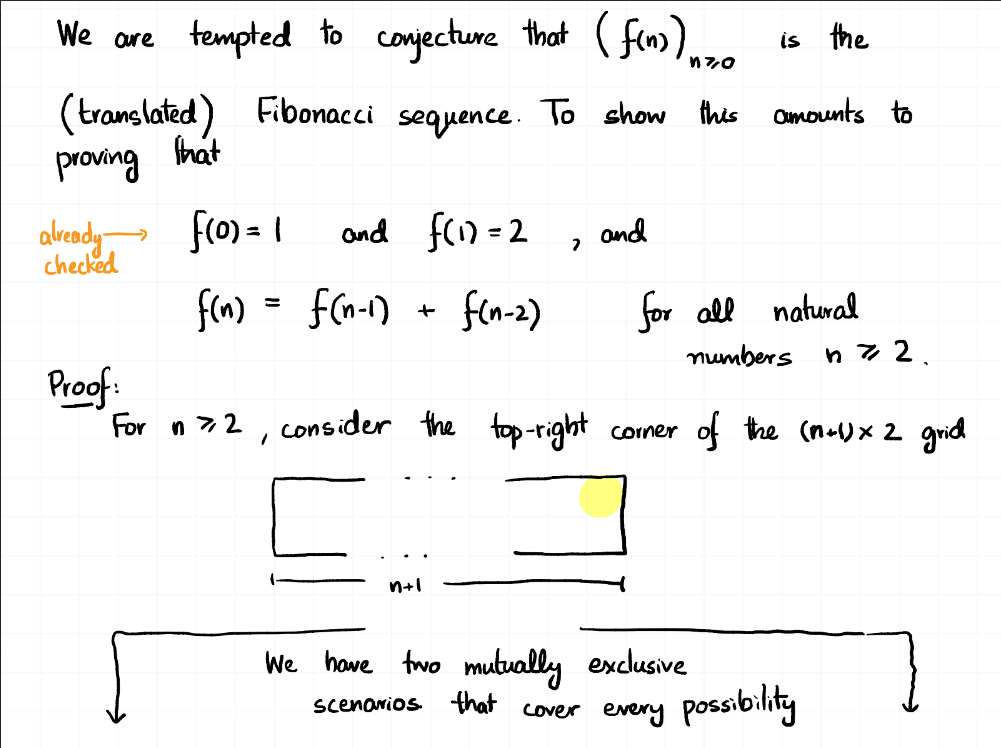 We are tempted to conjecture that (f(n))_{n≥0} is the
(translated) Fibonacci sequence. To show this amounts to
proving that
already checked → f(0) = 1 and f(1) = 2 , and
f(n) = f(n-1) + f(n-2) for all natural
numbers n ≥ 2.
Proof:
For n ≥ 2, consider the top-right corner of the (n+1) × 2 grid
. . .
. . .
n+1
We have two mutually exclusive
scenarios that cover every possibility